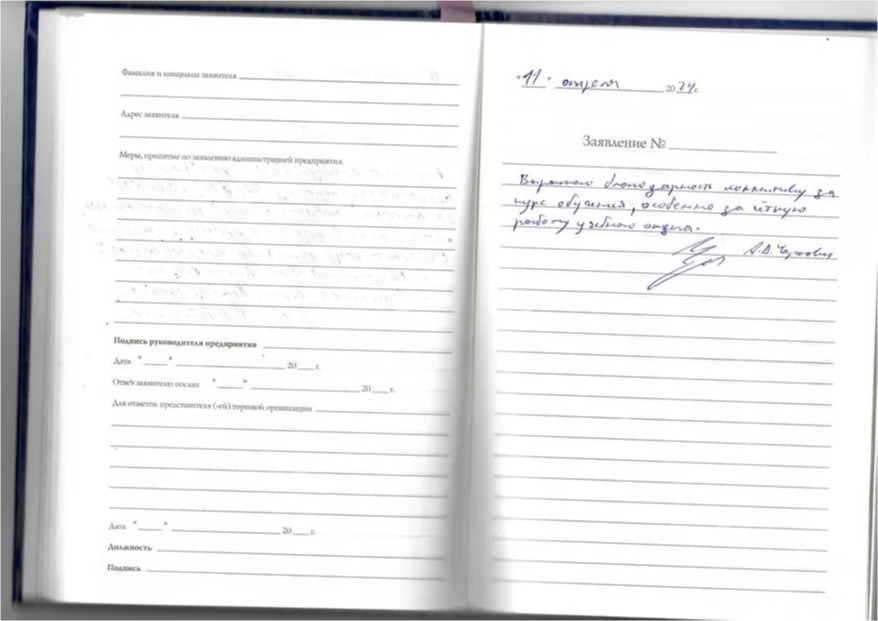 Фамилия и инициалы заявителя
Адрес заявителя
Меры, принятые по заявлению администрацией предприятия:
Подпись руководителя предприятия
Дата "___" ___ 20___ г.
Ответ заявителю послан "___" ___ 20___ г.
Для отметок представителя (-ей) торговой организации
Дата "___" ___ 20___ г.
Должность
Подпись
"11" апреля 2024г.
Заявление №
Выражаю благодарность коллективу за
курс обучения, особенно за чёткую
работу учебного отдела.
А.В.